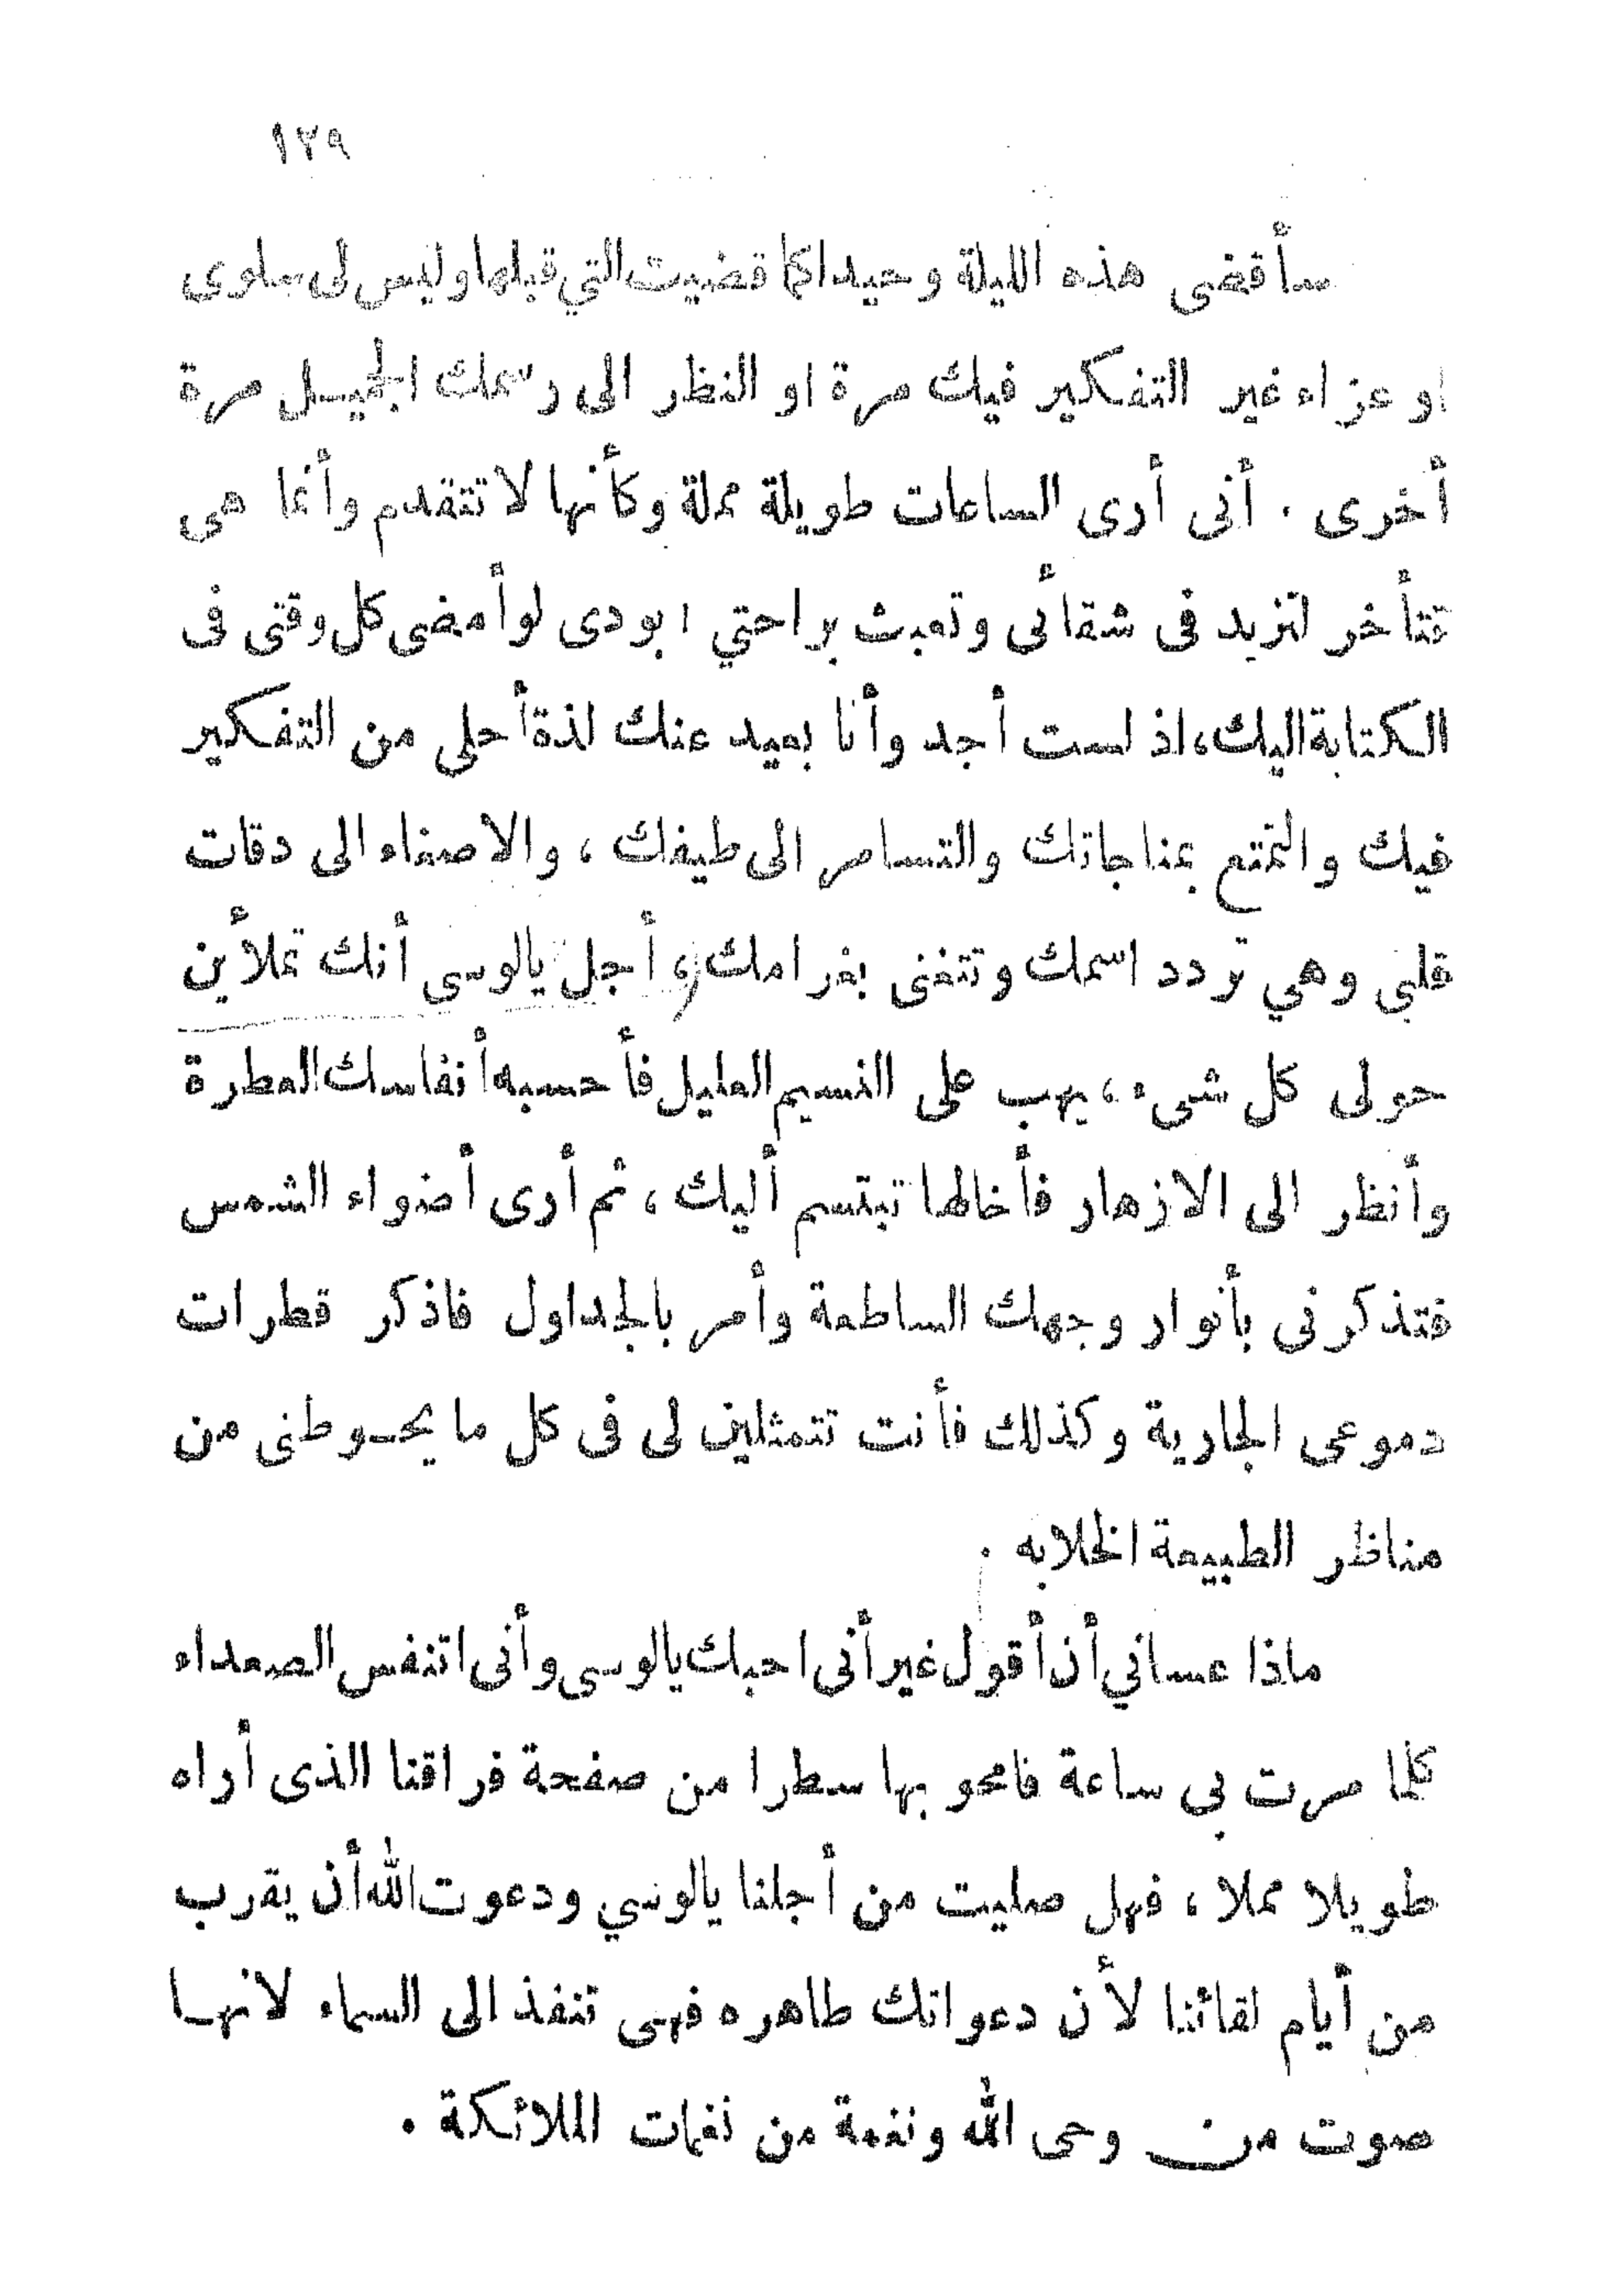 ١٢٩
سأقضى هذه الليلة وحيدا كما قضيت التي قبلها وليس لى سلوى
او عزاء غير التفكير فيك مرة او النظر الى رسمك الجميل مرة
أخرى . أنى أرى الساعات طويلة مملة وكأنها لا تتقدم وأنما هى
تتأخر لتزيد فى شقائى وتعبث براحتي ! بودى لو أمضى كل وقتى فى
الكتابة اليك، اذ لست أجد وأنا بعيد عنك لذة أحلى من التفكير
فيك والتمتع بمناجاتك والتسامر الى طيفك ، والاصغاء الى دقات
قلبى وهي تردد اسمك وتتغنى بغرامك ، أجل يالوسى أنك تملأين
حولى كل شىء ، يهب على النسيم العليل فأحسبه أنفاسك العطرة
وأنظر الى الازهار فأخالها تبتسم أليك ، ثم أرى أضواء الشمس
فتذكرنى بأنوار وجهك الساطعة وأمر بالجداول فاذكر قطرات
دموعى الجارية وكذلك فأنت تتمثلين لى فى كل ما يحوطنى من
مناظر الطبيعة الخلابه .
ماذا عساني أن أقول غير أنى احبك يالوسى وأنى اتنفس الصعداء
كلما مرت بي ساعة فامحو بها سطرا من صفحة فراقنا الذى أراه
طويلا مملا ، فهل صليت من أجلنا يالوسي ودعوت الله أن يقرب
من أيام لقائنا لأن دعواتك طاهره فهى تنفذ الى السماء لانها
صوت من وحى الله ونغمة من نغمات الملائكة .